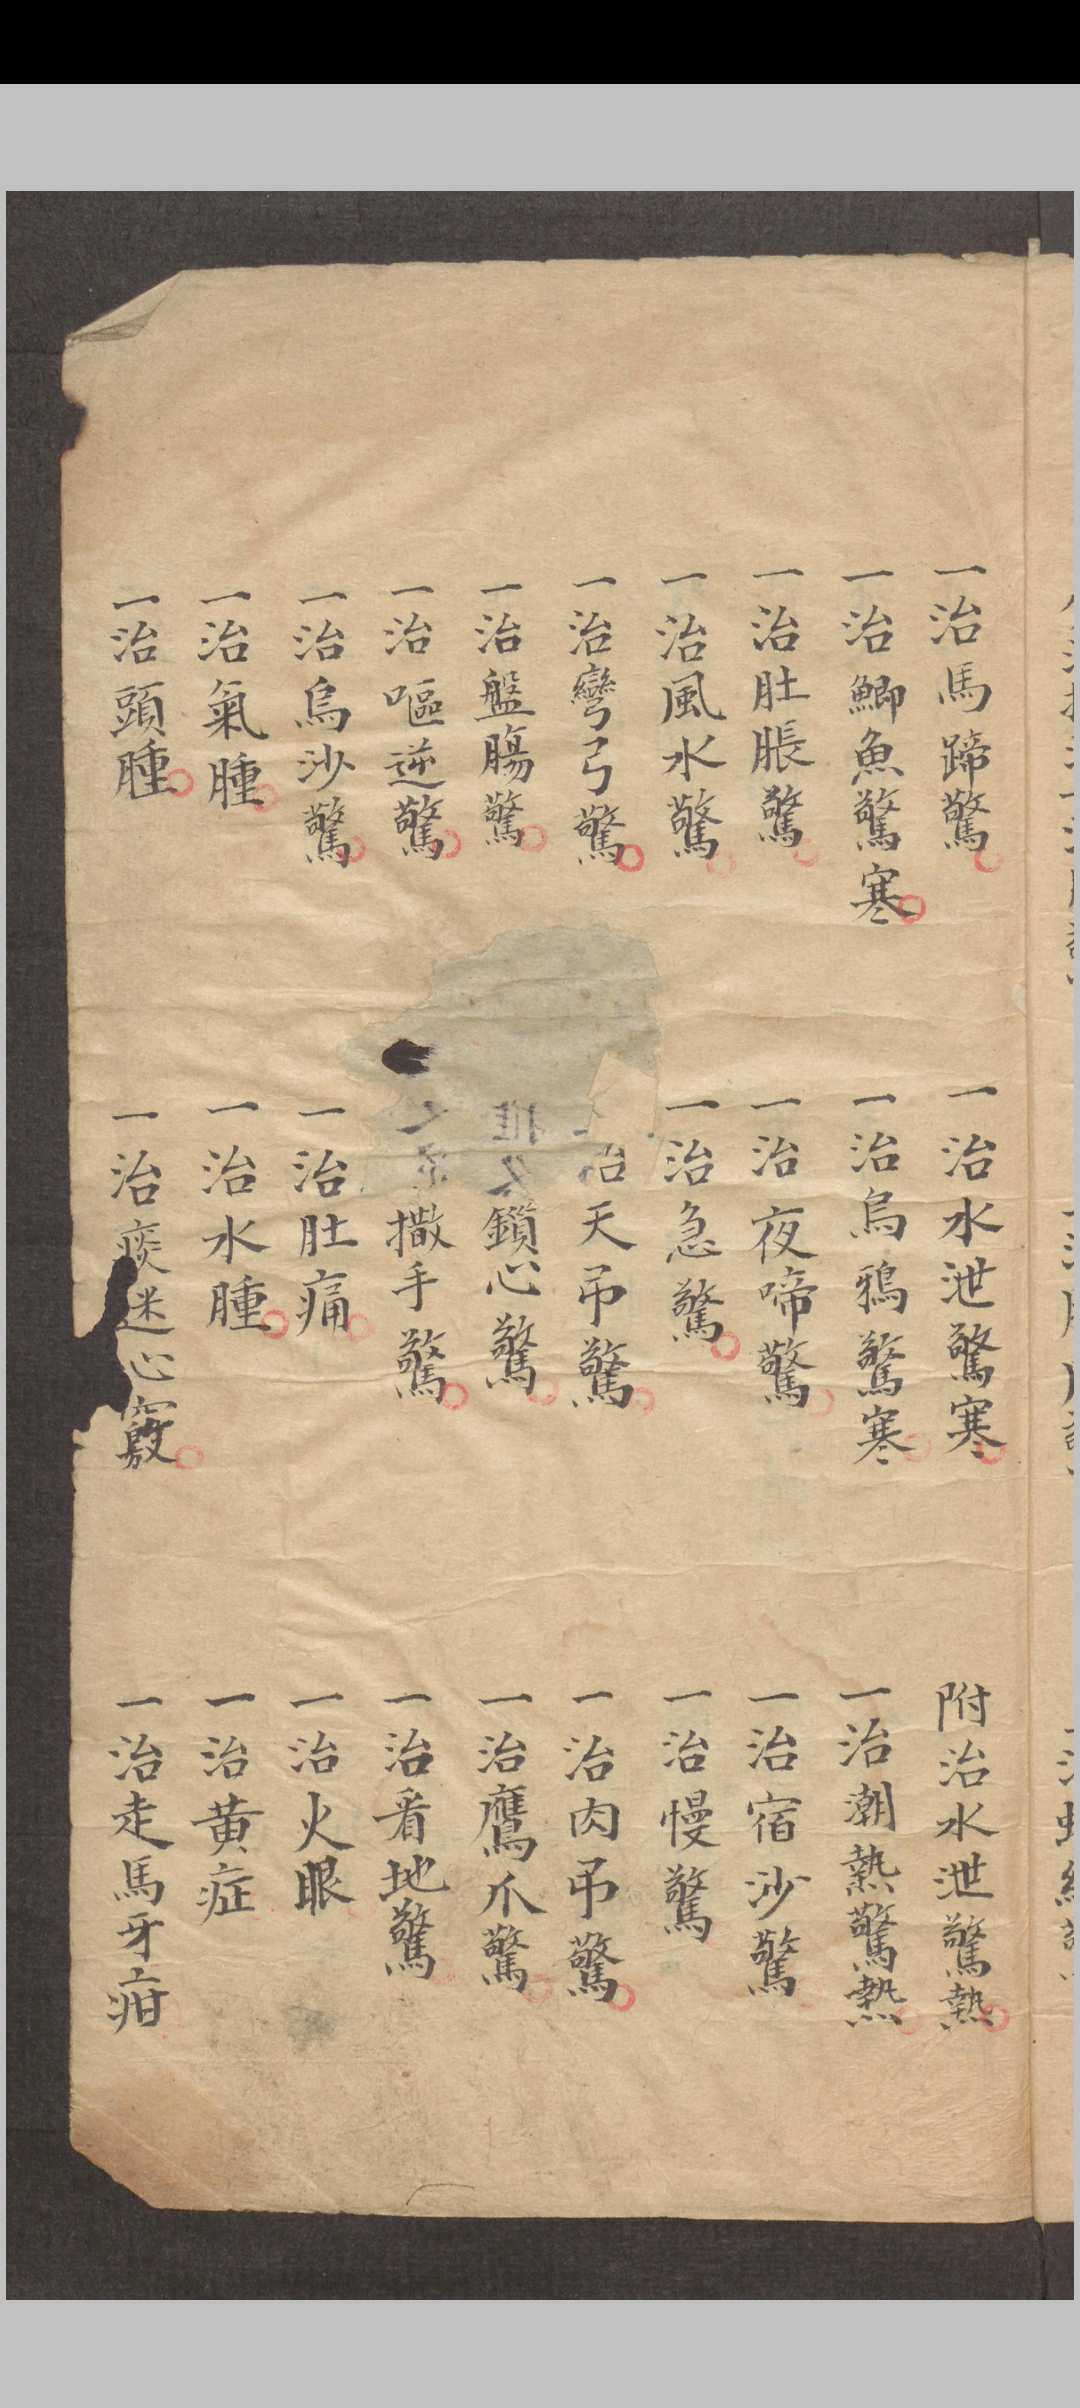 一治馬蹄驚
一治水泄驚寒
附治水泄驚熱
一治鯽魚驚寒
一治烏鴉驚寒
一治潮熱驚熱
一治肚脹驚
一治夜啼驚
一治宿沙驚
一治風水驚
一治急驚
一治慢驚
一治彎弓驚
治天吊驚
一治肉吊驚
一治盤腸驚
鎖心驚
一治鷹爪驚
一治嘔逆驚
撒手驚
一治看地驚
一治烏沙驚
一治肚痛
一治火眼
一治氣腫
一治水腫
一治黄症
一治頭腫
一治痰迷心竅
一治走馬牙疳